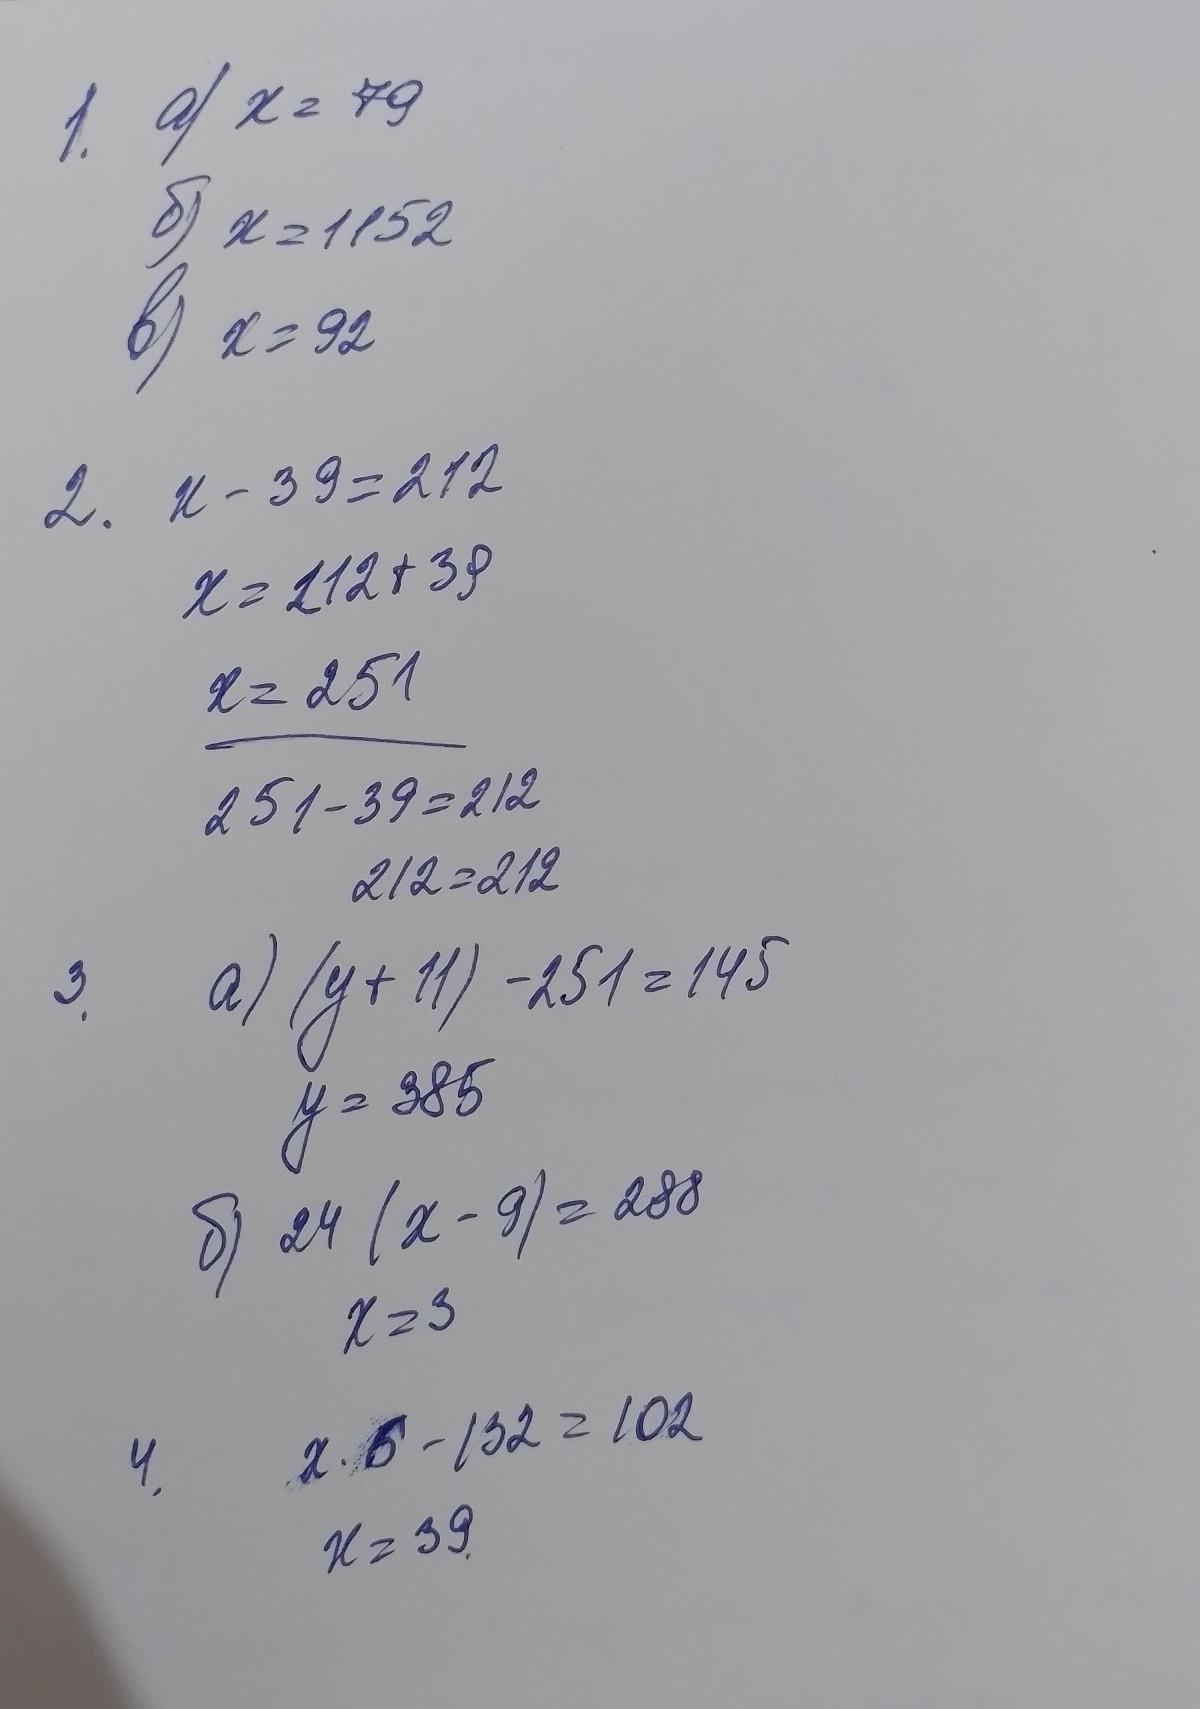 1. а) x = 79
б) x = 1152
в) x = 92
2. x - 39 = 212
x = 212 + 39
x = 251
251 - 39 = 212
212 = 212
3. а) (y + 11) - 251 = 145
y = 385
б) 24 (x - 9) = 288
x = 3
4. x · 6 - 132 = 102
x = 39.